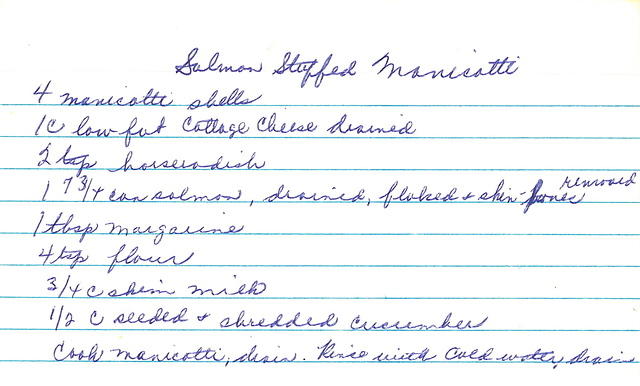 Salmon Stuffed Manicotti
4 manicotti shells
1 C low-fat Cottage Cheese drained
2 tsp horseradish
1 7 3/4 can salmon, drained, flaked + skin - bones removed
1 tbsp margarine
4 tsp flour
3/4 C skim milk
1/2 C seeded + shredded cucumber
Cook manicotti, drain. Rinse with Cold water, drain